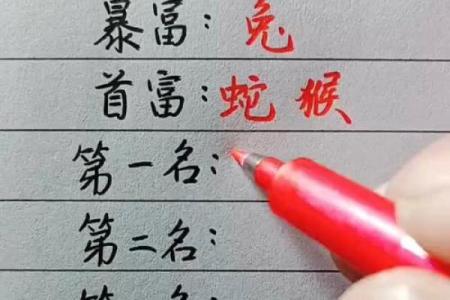 暴富：兔
首富：蛇 猴
第一名：
第二名：